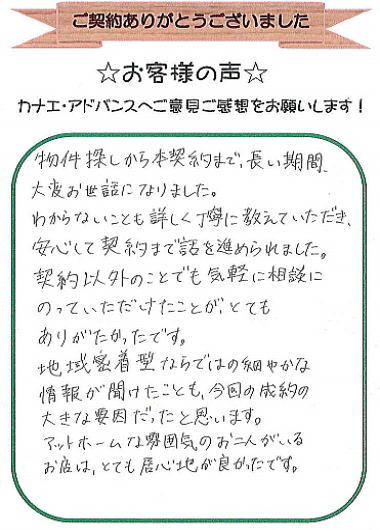 ご契約ありがとうございました
☆お客様の声☆
カナエ・アドバンスへご意見ご感想をお願いします!
物件探しから本契約まで、長い期間、
大変お世話になりました。
わからないことも詳しく丁寧に教えていただき、
安心して契約まで話を進められました。
契約以外のことでも気軽に相談に
のっていただけたことが、とても
ありがたかったです。
地域密着型ならではの細やかな
情報が聞けたことも、今回の成約の
大きな要因だったと思います。
アットホームな雰囲気のお二人がいる
お店は、とても居心地が良かったです。